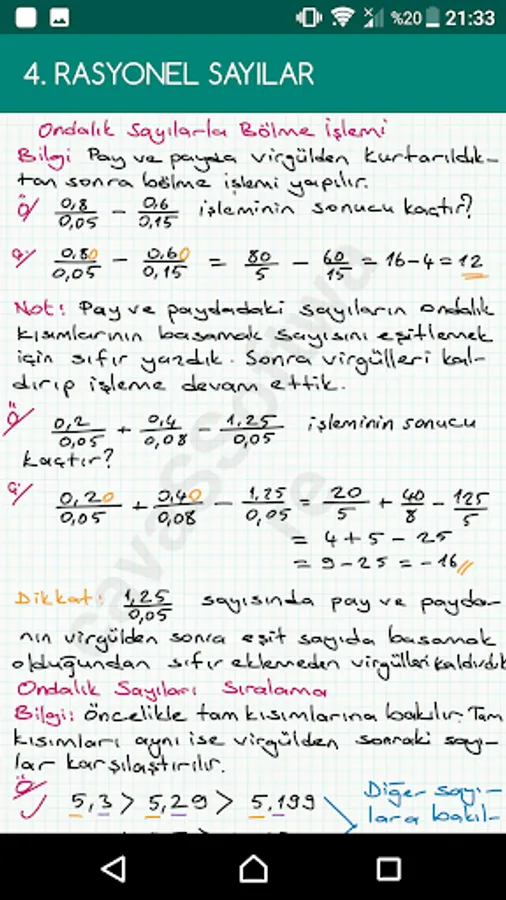 %20 21:33
4. RASYONEL SAYILAR
Ondalık Sayılarla Bölme İşlemi
Bilgi Pay ve payda virgülden kurtarıldık-
tan sonra bölme işlemi yapılır.
Ö/ 0,8/0,05 - 0,6/0,15 işleminin sonucu kaçtır?
Ç/ 0,80/0,05 - 0,60/0,15 = 80/5 - 60/15 = 16-4 = 12
Not: Pay ve paydadaki sayıların ondalık
kısımlarının basamak sayısını eşitlemek
için sıfır yazdık. Sonra virgülleri kal-
dırıp işleme devam ettik.
Ö/ 0,2/0,05 + 0,4/0,08 - 1,25/0,05 işleminin sonucu
kaçtır?
Ç/ 0,20/0,05 + 0,40/0,08 - 1,25/0,05 = 20/5 + 40/8 - 125/5
= 4+5 - 25
= 9-25 = -16//
Dikkat: 1,25/0,05 sayısında pay ve payda-
nın virgülden sonra eşit sayıda basamak
olduğundan sıfır eklemeden virgülleri kaldırdık
Ondalık Sayıları Sıralama
Bilgi: Öncelikle tam kısımlarına bakılır. Tam
kısımları aynı ise virgülden sonraki sayı-
lar karşılaştırılır.
Ö/ 5,3 > 5,29 > 5,199
Diğer sayı-
lara bakıl-